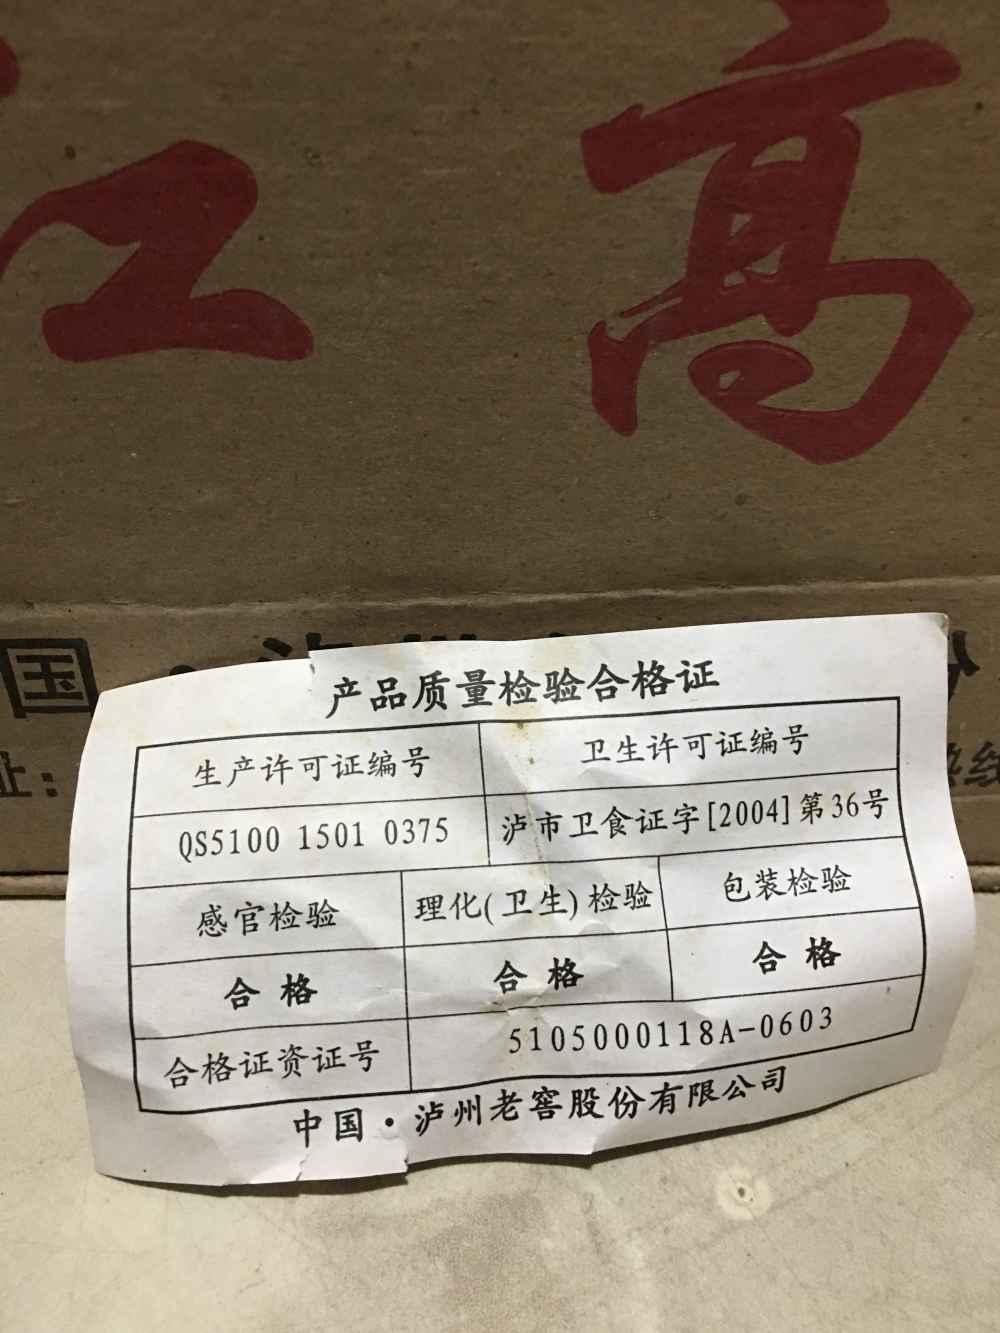 江高
国
产品质量检验合格证
生产许可证编号 卫生许可证编号
QS5100 1501 0375 泸市卫食证字[2004]第36号
感官检验 理化(卫生)检验 包装检验
合格 合格 合格
合格证资证号 5105000118A-0603
中国·泸州老窖股份有限公司